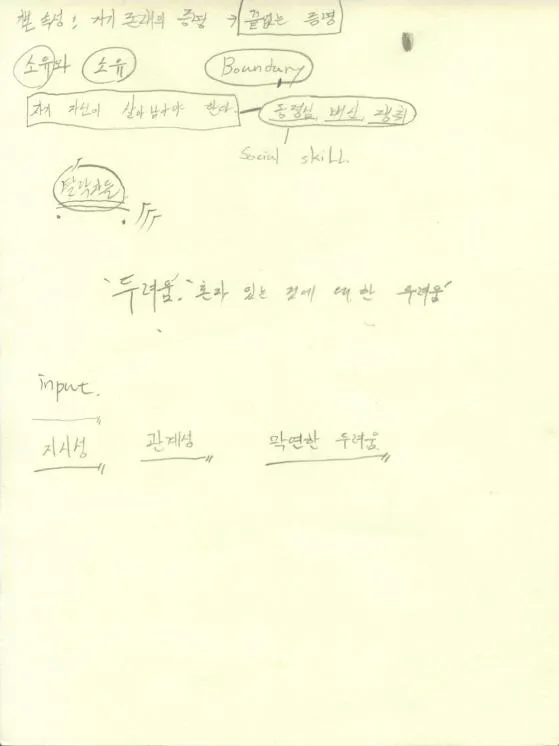 속성! 자기 존재의 증명 → 끝없는 증명
소유와 소유 Boundary
자기 자신이 살아남아야 한다. 동정심, 배신,
Social skill.
탈락자들
"두려움." 혼자 있는 것에 대한 두려움"
input.
지시성 관계성 막연한 두려움